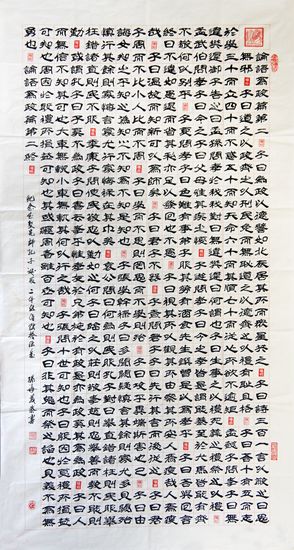 論語爲政篇第二 子曰爲政以德譬如北辰居其所而衆星共之 子曰詩三百一言以蔽之曰思
無邪 子曰道之以政齊之以刑民免而無恥道之以德齊之以禮有恥且格 子曰吾十有五而志
於學三十而立四十而不惑五十而知天命六十而耳順七十而從心所欲不逾矩 孟懿子問孝子曰無
違樊遲御子告之曰孟孫問孝於我我對曰無違樊遲曰何謂也子曰生事之以禮死葬之以禮祭之以禮
孟武伯問孝子曰父母唯其疾之憂 子游問孝子曰今之孝者是謂能養至於犬馬皆能有養
不敬何以別乎 子夏問孝子曰色難有事弟子服其勞有酒食先生饌曾是以爲孝乎 子曰吾與回言終日
不違如愚退而省其私亦足以發回也不愚 子曰視其所以觀其所由察其所安人焉廋哉人焉廋
哉 子曰溫故而知新可以爲師矣 子曰君子不器 子貢問君子子曰先行其言而後從之 子曰君
子周而不比小人比而不周 子曰學而不思則罔思而不學則殆 子曰攻乎異端斯害也已 子曰由
誨女知之乎知之爲知之不知爲不知是知也 子張學干祿子曰多聞闕疑慎言其餘則寡尤多見闕殆
慎行其餘則寡悔言寡尤行寡悔祿在其中矣 哀公問曰何爲則民服孔子對曰舉直錯諸枉則民服舉
枉錯諸直則民不服 季康子問使民敬忠以勸如之何子曰臨之以莊則敬孝慈則忠舉善而教不能則
勸 或謂孔子曰子奚不爲政子曰書云孝乎惟孝友于兄弟施於有政是亦爲政奚其爲爲政 子曰人
而無信不知其可也大車無輗小車無軏其何以行之哉 子張問十世可知也子曰殷因於夏禮所損益
可知也周因於殷禮所損益可知也其或繼周者雖百世可知也 子曰非其鬼而祭之諂也見義不爲無
勇也 論語爲政篇第二終